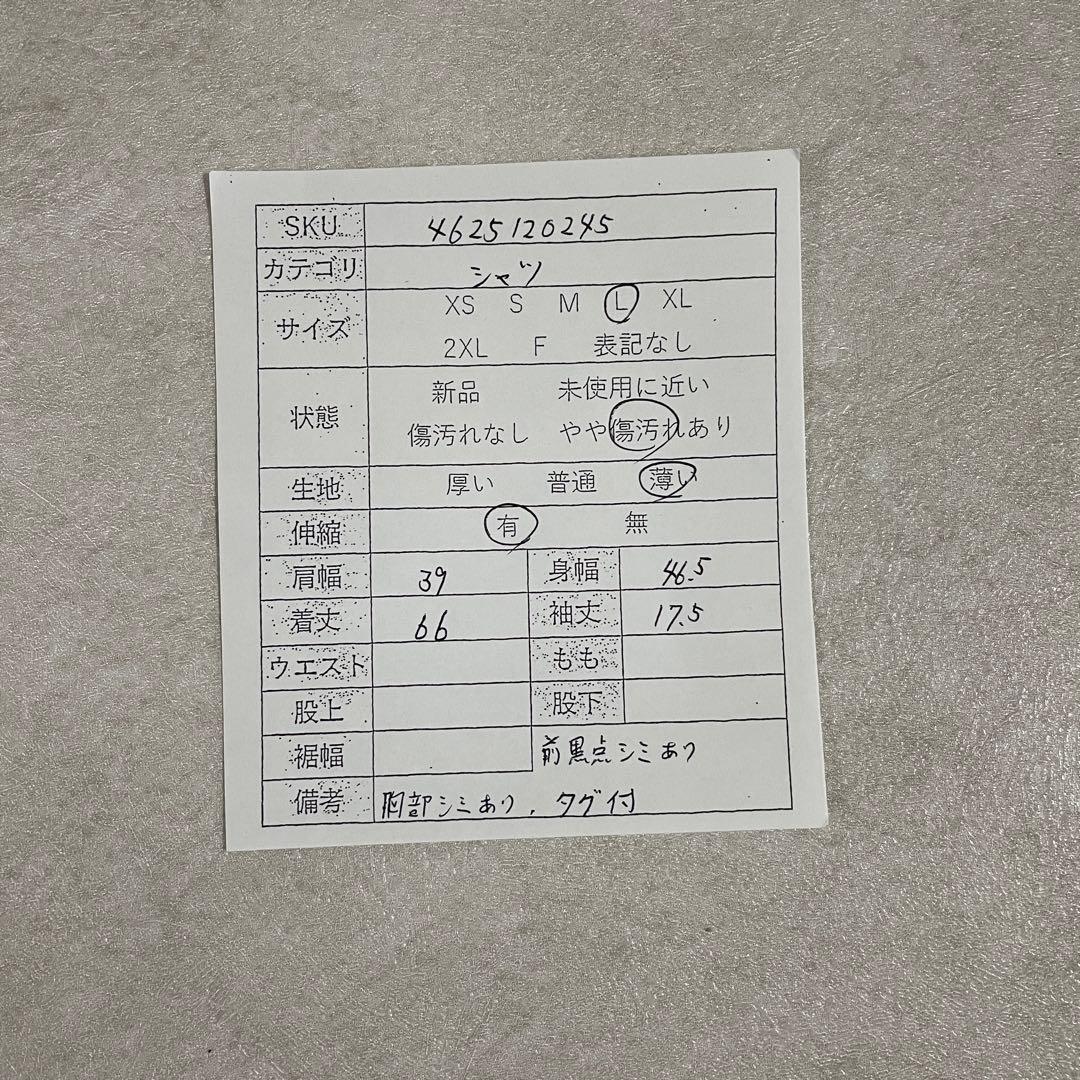 SKU 4625120245
カテゴリ シャツ
サイズ XS S M L XL
2XL F 表記なし
状態 新品 未使用に近い
傷汚れなし やや傷汚れあり
生地 厚い 普通 薄い
伸縮 有 無
肩幅 39 身幅 46.5
着丈 66 袖丈 17.5
ウエスト もも
股上 股下
裾幅 前黒点シミあり
備考 胸部シミあり、タグ付